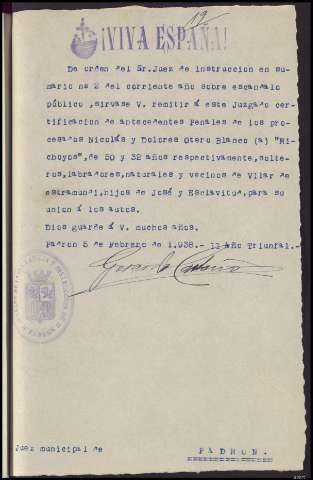 12
¡VIVA ESPAÑA!
De orden del Sr.Juez de Instruccion en su-
mario no 2 del corriente año sobre escandalo
público ,sirvase V. remitir á este Juzgado cer-
tificacion de antecedentes Penales de los pro-
cesados Nicolás y Dolores Otero Blanco (a) "Ri-
choyos", de 50 y 32 años respectivamente,solte-
ros,labradores,naturales y vecinos de Vilar de
estramundi,hijos de José y Esclavitud,para su
unico á los autos.
Dios guarde á V. muchos años.
Padron 5 de Febrero de 1.938.- II Año Triunfal.-
Gerardo
PADRON
Juez municipal de
PADRON.